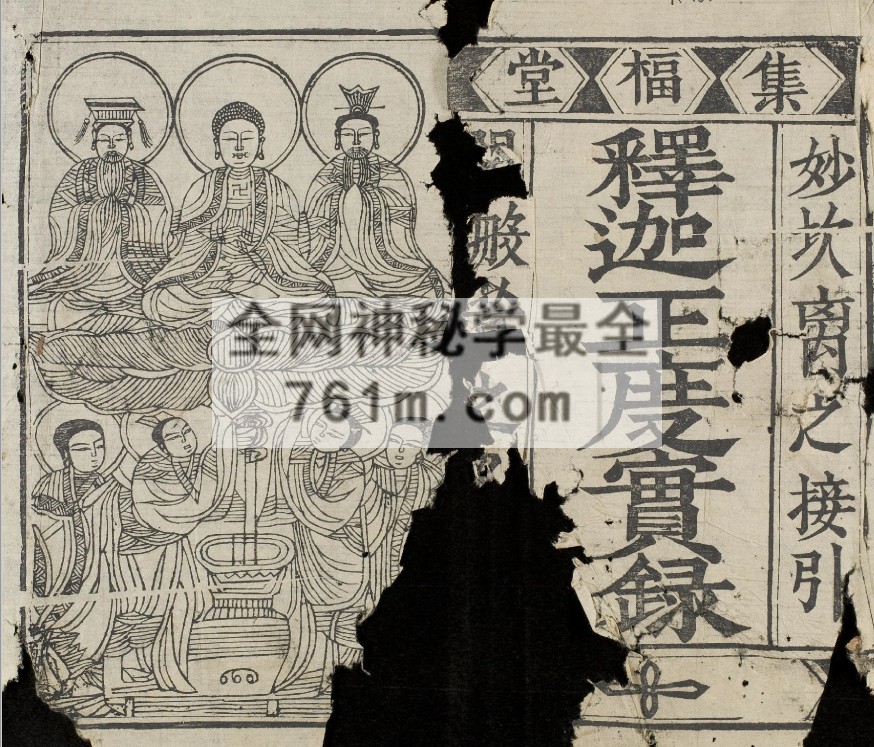 集福堂
妙坎离之接引
釋迦正度實録
般
全网神秘学最全
761m.com